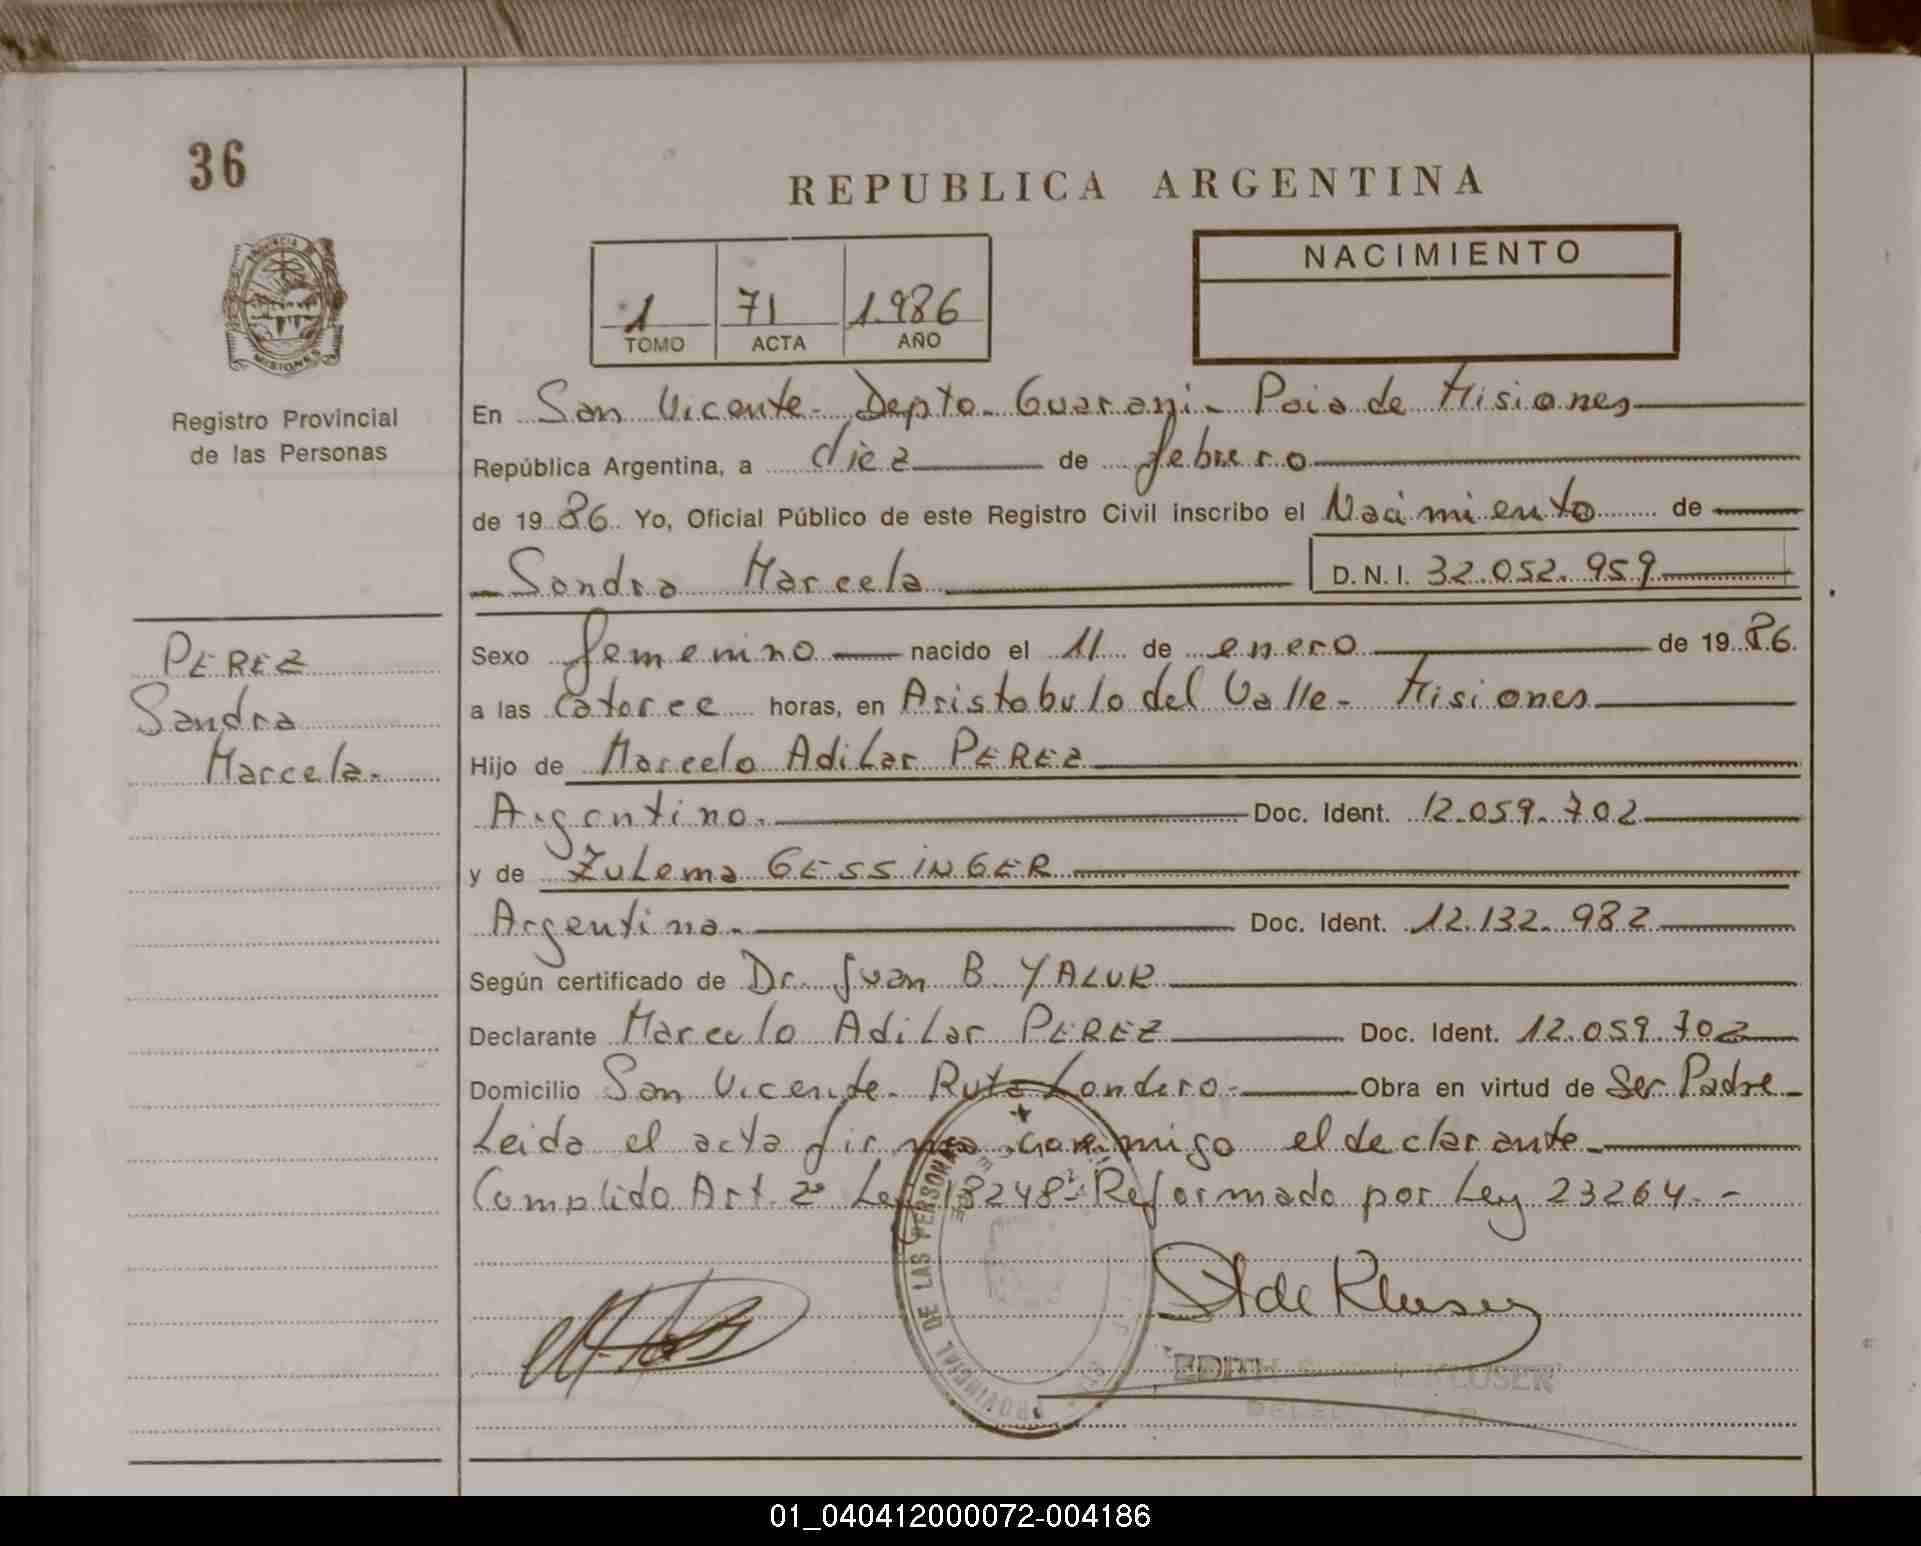 36
REPUBLICA ARGENTINA
NACIMIENTO
1 71 1.986
TOMO ACTA AÑO
PROVINCIA DE
MISIONES
Registro Provincial
de las Personas
En San Vicente - Depto. Guarani - Pcia de Misiones
República Argentina, a diez de febrero
de 1986 Yo, Oficial Público de este Registro Civil inscribo el Nacimiento de
Sandra Marcela D.N.I. 32.052.959
PEREZ
Sandra
Marcela.
Sexo femenino nacido el 11 de enero de 1986.
a las catorce horas, en Aristobulo del Valle - Misiones
Hijo de Marcelo Adilar PEREZ
Argentino. Doc. Ident. 12.059.702
y de Zulema GESSINGER
Argentina. Doc. Ident. 12.132.982
Según certificado de Dr. Juan B YALUR
Declarante Marcelo Adilar PEREZ Doc. Ident. 12.059.702
Domicilio San Vicente - Ruta Londero - Obra en virtud de Ser Padre
Leida el acta firma conmigo el declarante
Cumplido Art. 2º Ley 18248 - Reformado por Ley 23264. -
PROVINCIAL DE LAS PERSONAS
de Kluser
EDITH KLUSER
01_040412000072-004186